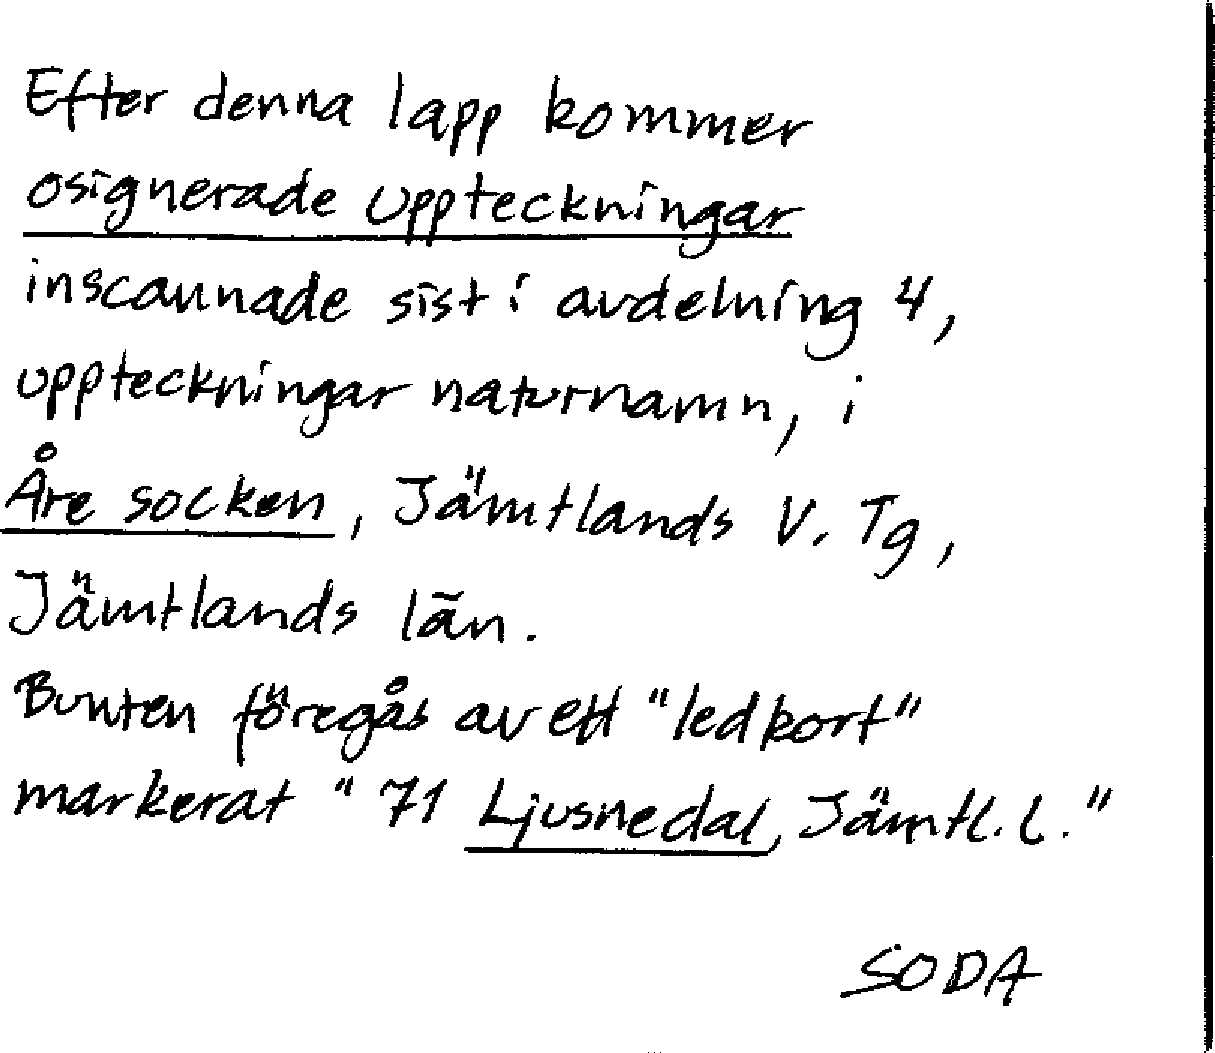 Efter denna lapp kommer
osignerade uppteckningar
inscannade sist i avdelning 4,
uppteckningar naturnamn, i
Åre socken, Jämtlands V. Tg,
Jämtlands län.
Bunten föregås av ett "ledkort"
markerat "71 Ljusnedal, Jämtl. l."
SODA